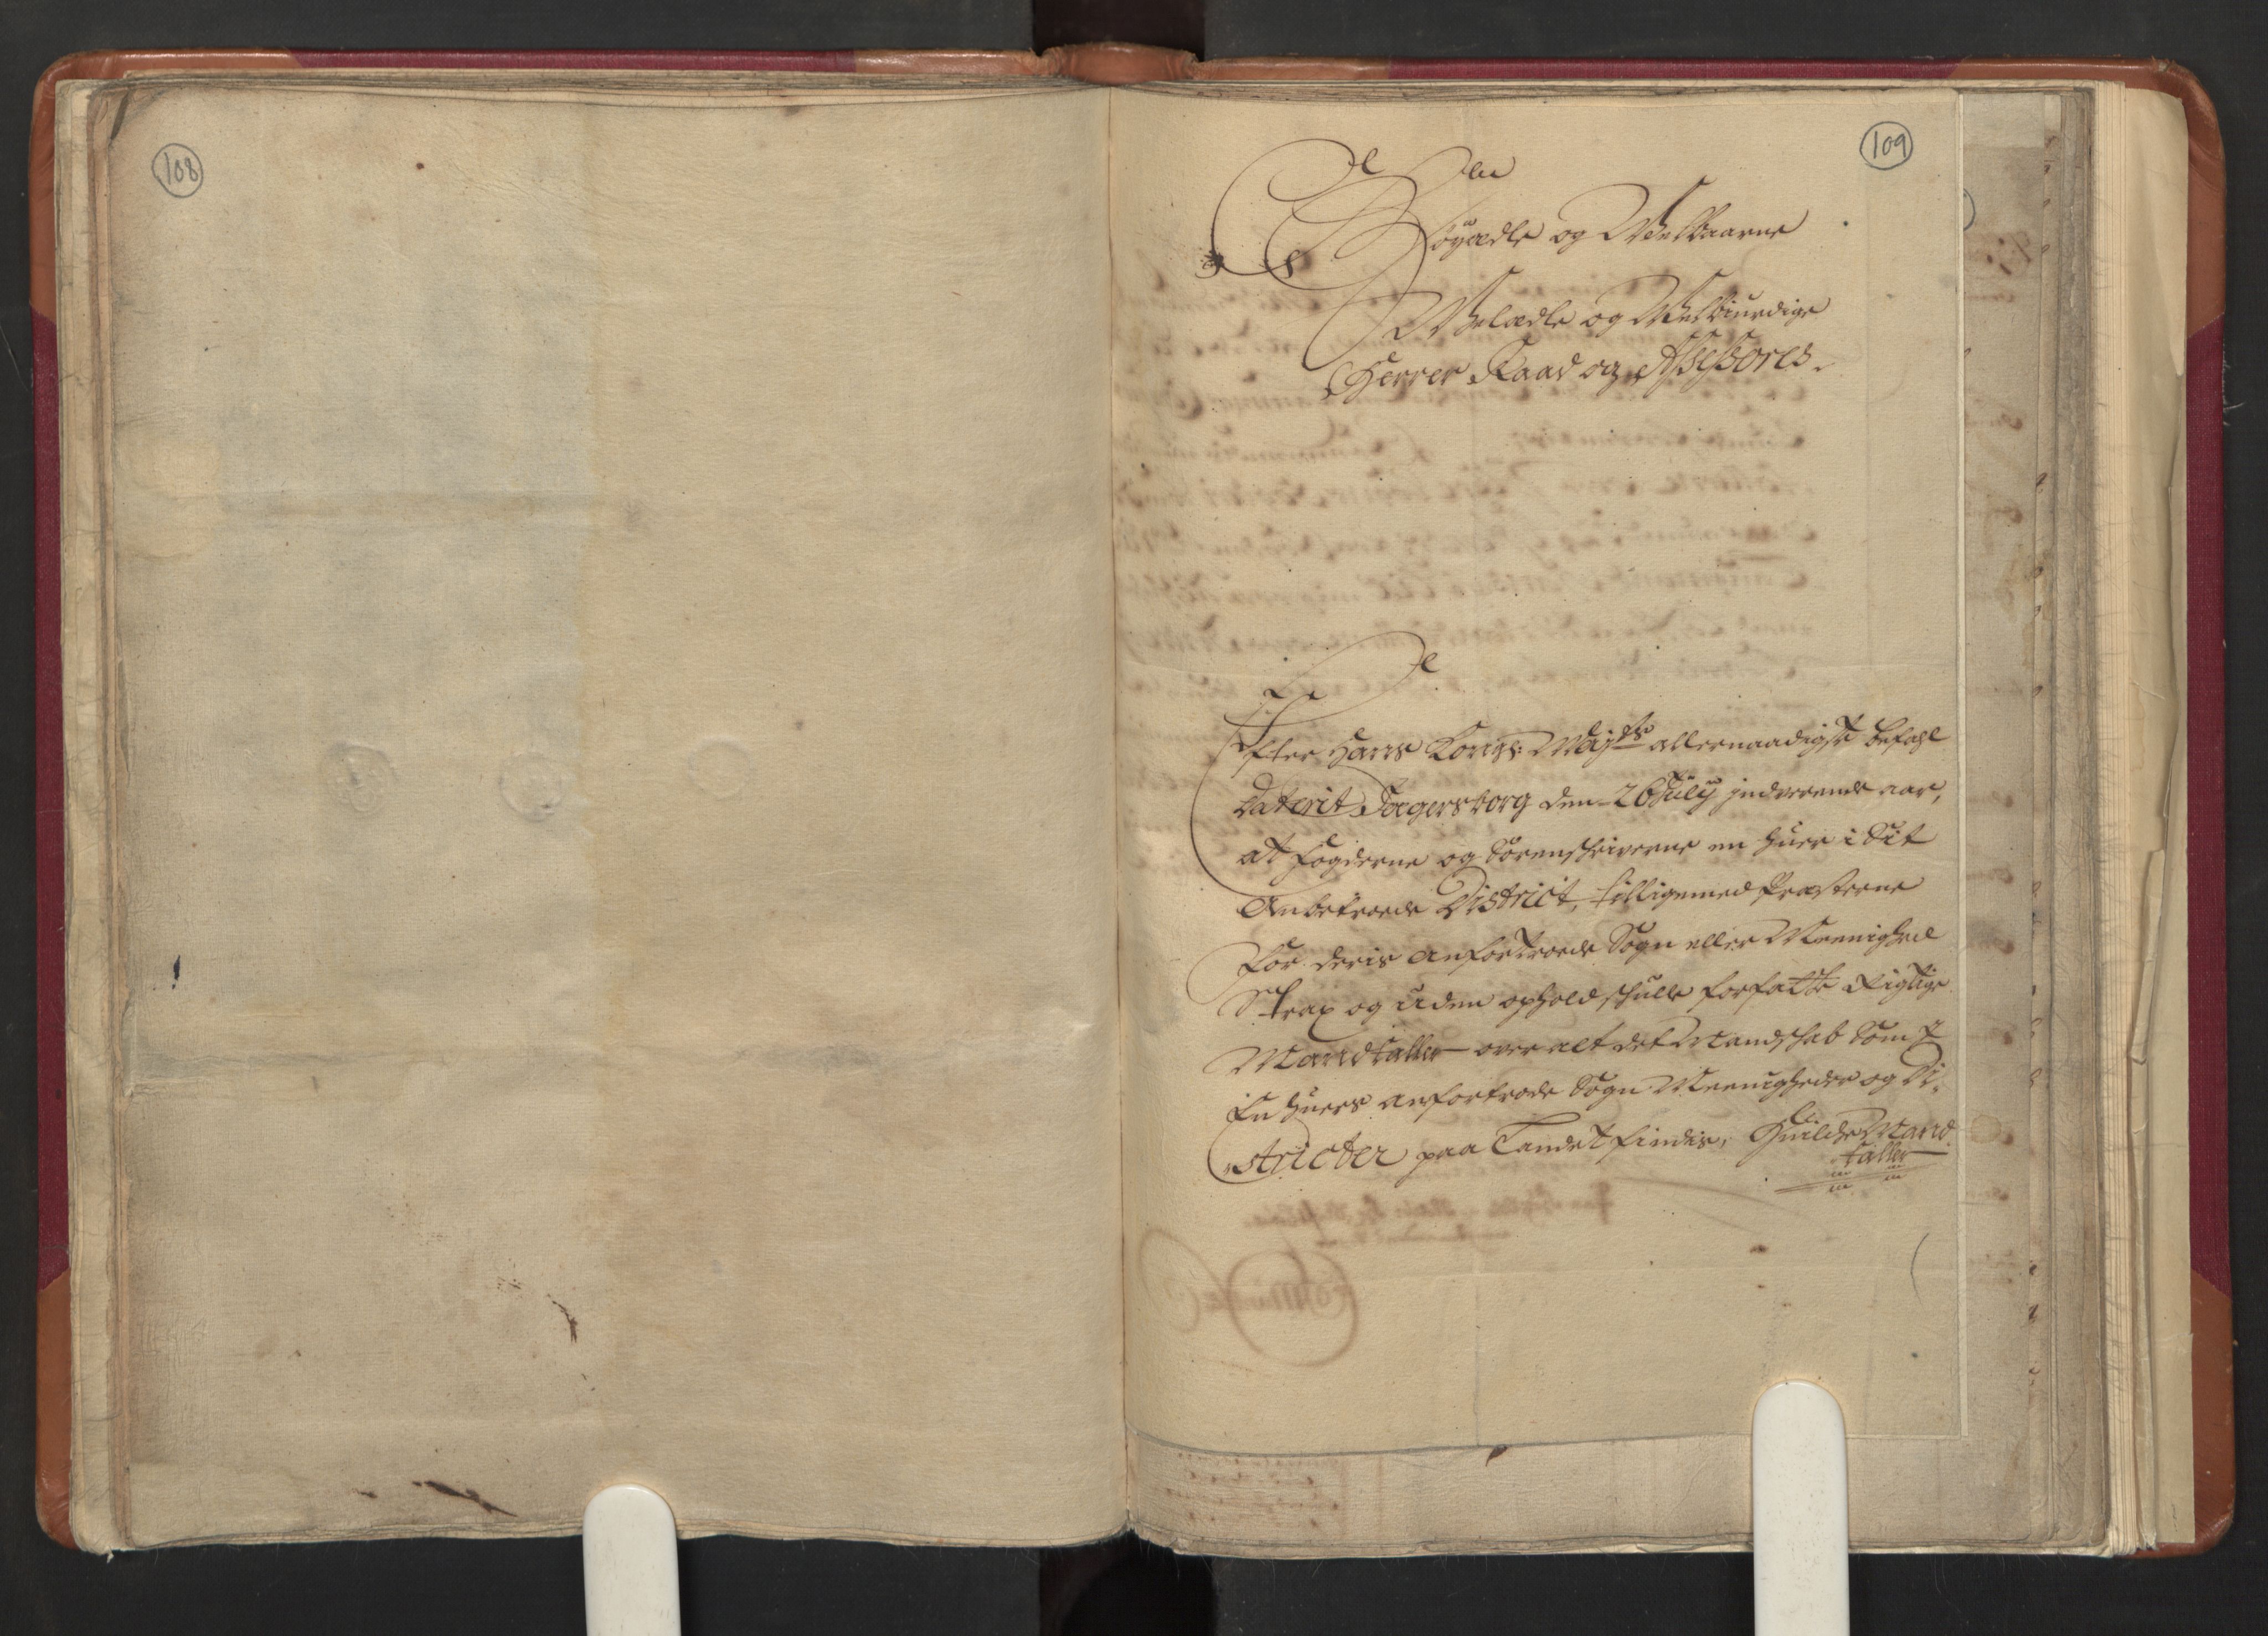 108
109
Høyædle og Welbaarne
Welædle og Welbiurdige
Herrer Raad og Assessores.
Efter Hans Kongl: Maj:ts allernaadigste befahl
Daterit Jægersborg den 26 July indeværende aar,
at fogderne og Sorenskriverne en huer i Sit
Anbetroede District, tilligemed Præsterne
For deris anfortroede Sogn eller Meenighed
Strax og uden ophold skulle forfatte Rigtige
Mandtaller over alt det Mandskab som J
En huers anfortrode Sogn Meenigheder og Di-
stricter paa Landet findis, Huilche Mand
taller